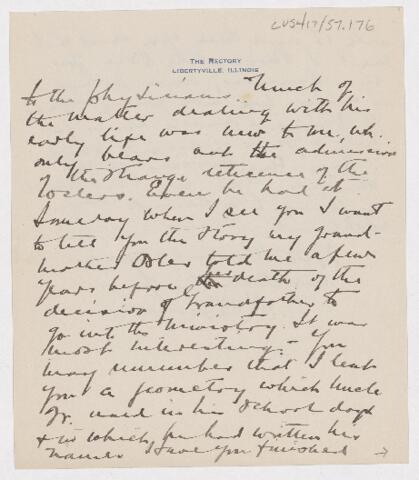 CUS417/57.176
THE RECTORY
LIBERTYVILLE, ILLINOIS
to the physicians. Much of
the matter dealing with his
early life was new to me, wh.
only bears out the admission
of the strange reticence of the
Oslers. Even he had it
Someday when I see you I want
to tell you the story my grand-
mother Osler told me a few
years before her death of the
decision of Grandfather to
go into the ministry. It was
most interesting - You
may remember that I lent
you a geometry which Uncle
Wm. used in his school days
& in which he had written his
name. Have you finished